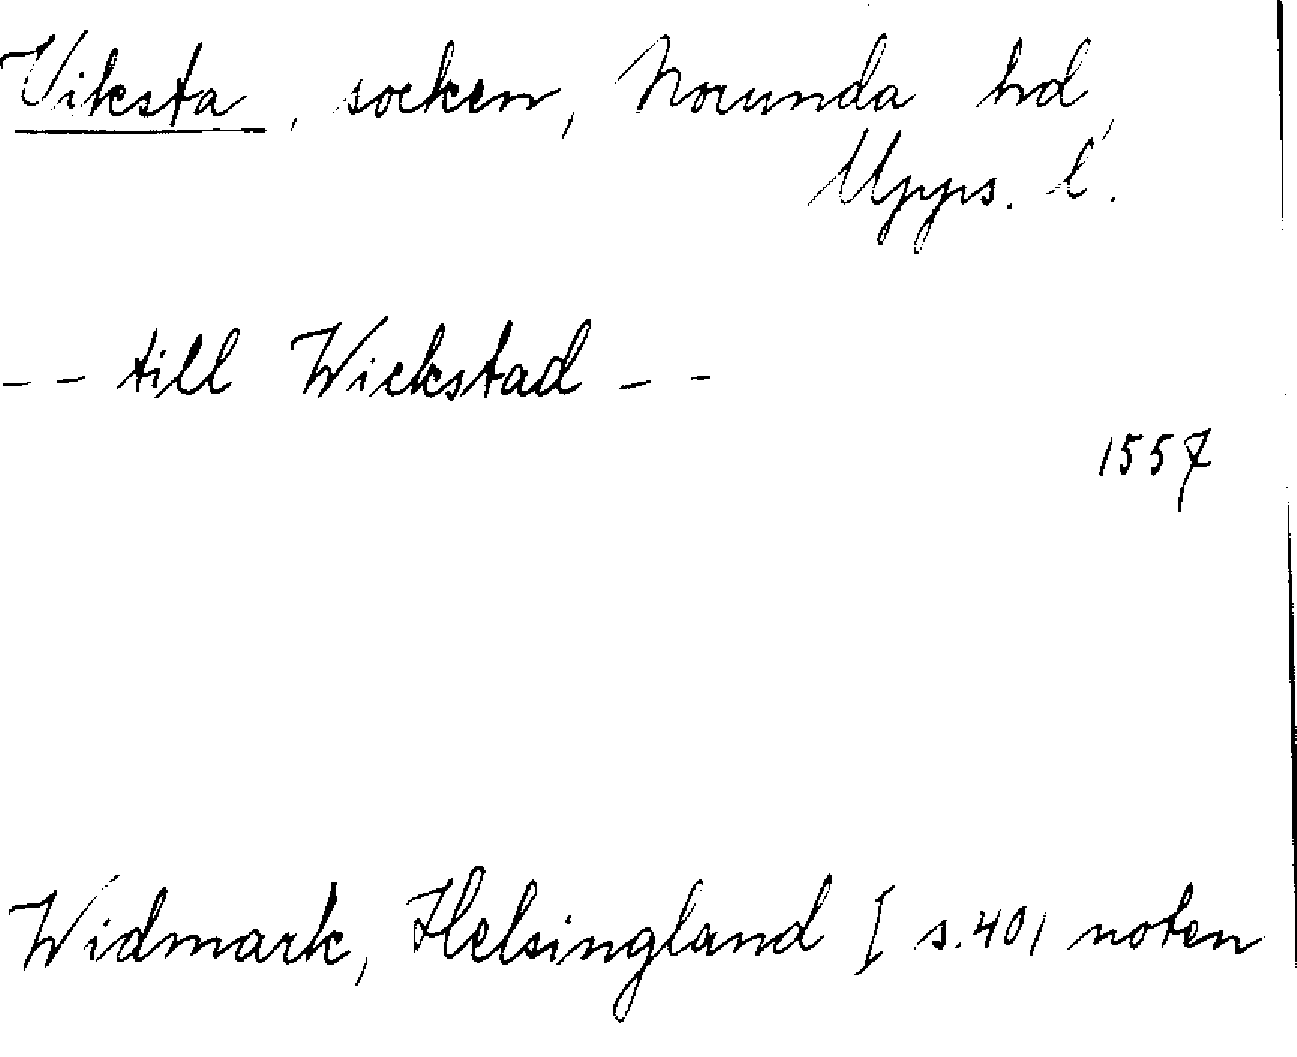 Viksta, socken, Norunda hd,
Upps. l.
-- till Wickstad --
1557
Widmark, Helsingland I s. 401 noten